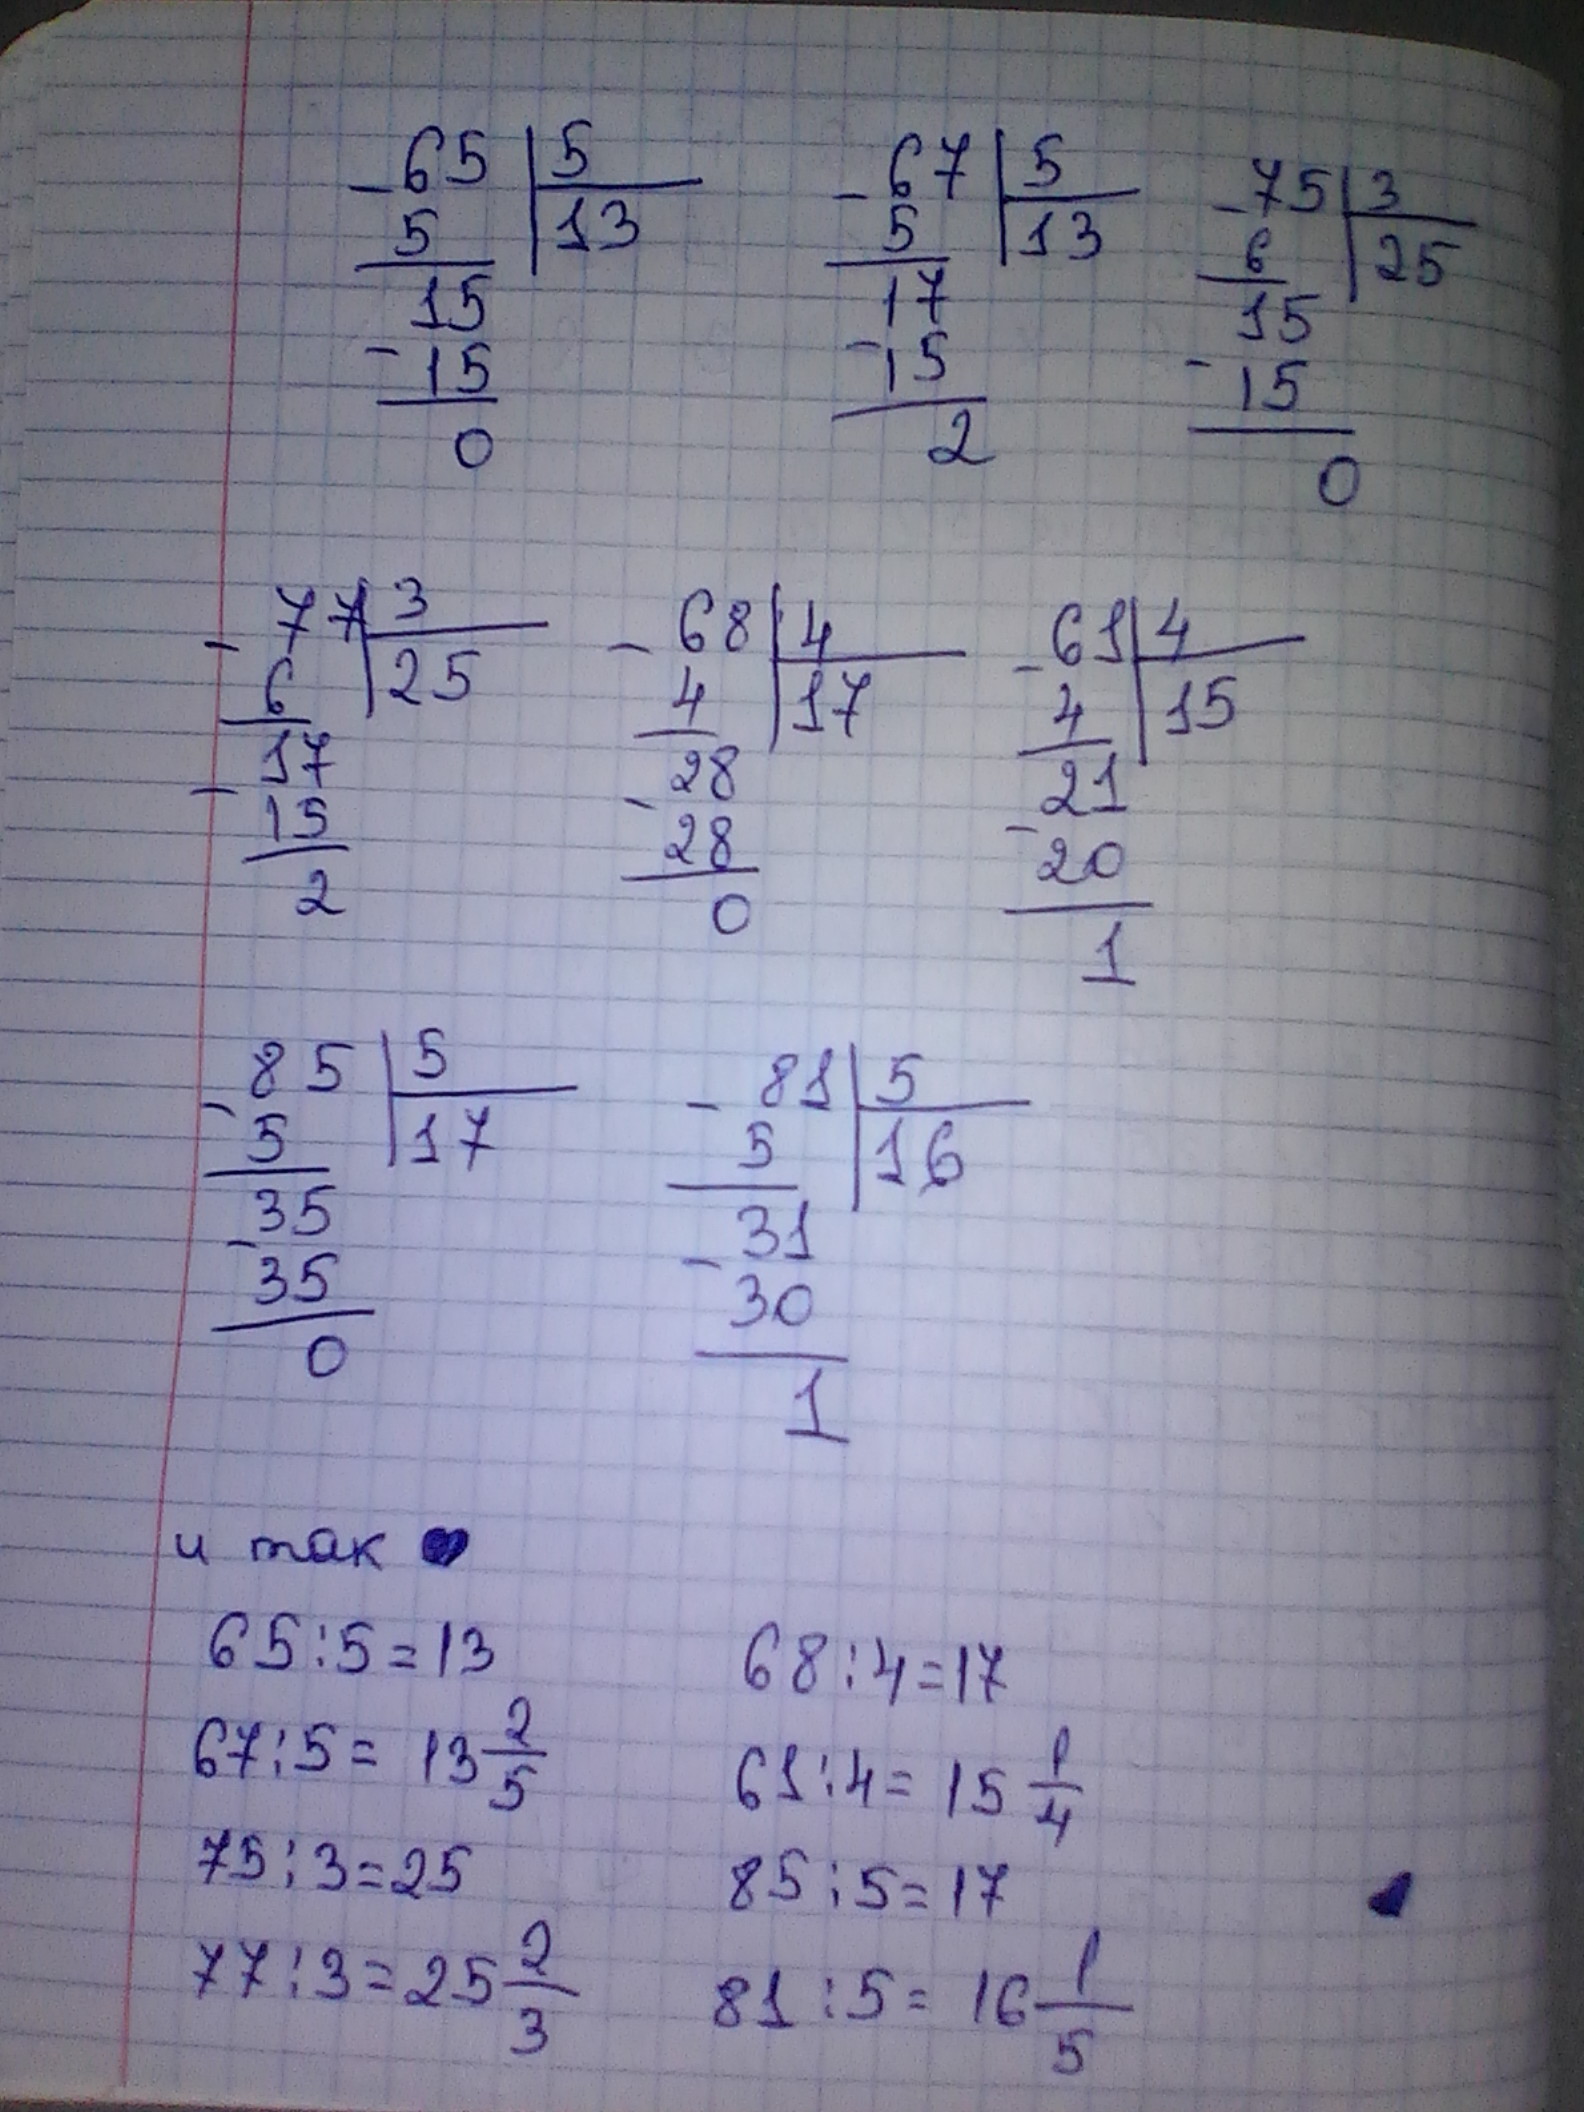 -65 | 5    -67 | 5    -75 | 3
5 | 13    5 | 13    6 | 25
15    17    15
-15    -15    -15
0    2    0
-77 | 3    -68 | 4    -61 | 4
6 | 25    4 | 17    4 | 15
-17    -28    -21
15    28    20
2    0    1
-85 | 5    -81 | 5
5 | 17    5 | 16
-35    -31
35    30
0    1
и так
65:5=13    68:4=17
67:5= 13 2/5    61:4= 15 1/4
75:3=25    85:5=17
77:3=25 2/3    81:5= 16 1/5